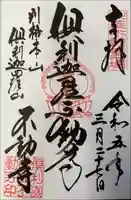 奉拝
令和五年
三月二十七日
倶利迦羅不動尊
別格本山
倶利迦羅山
不動寺